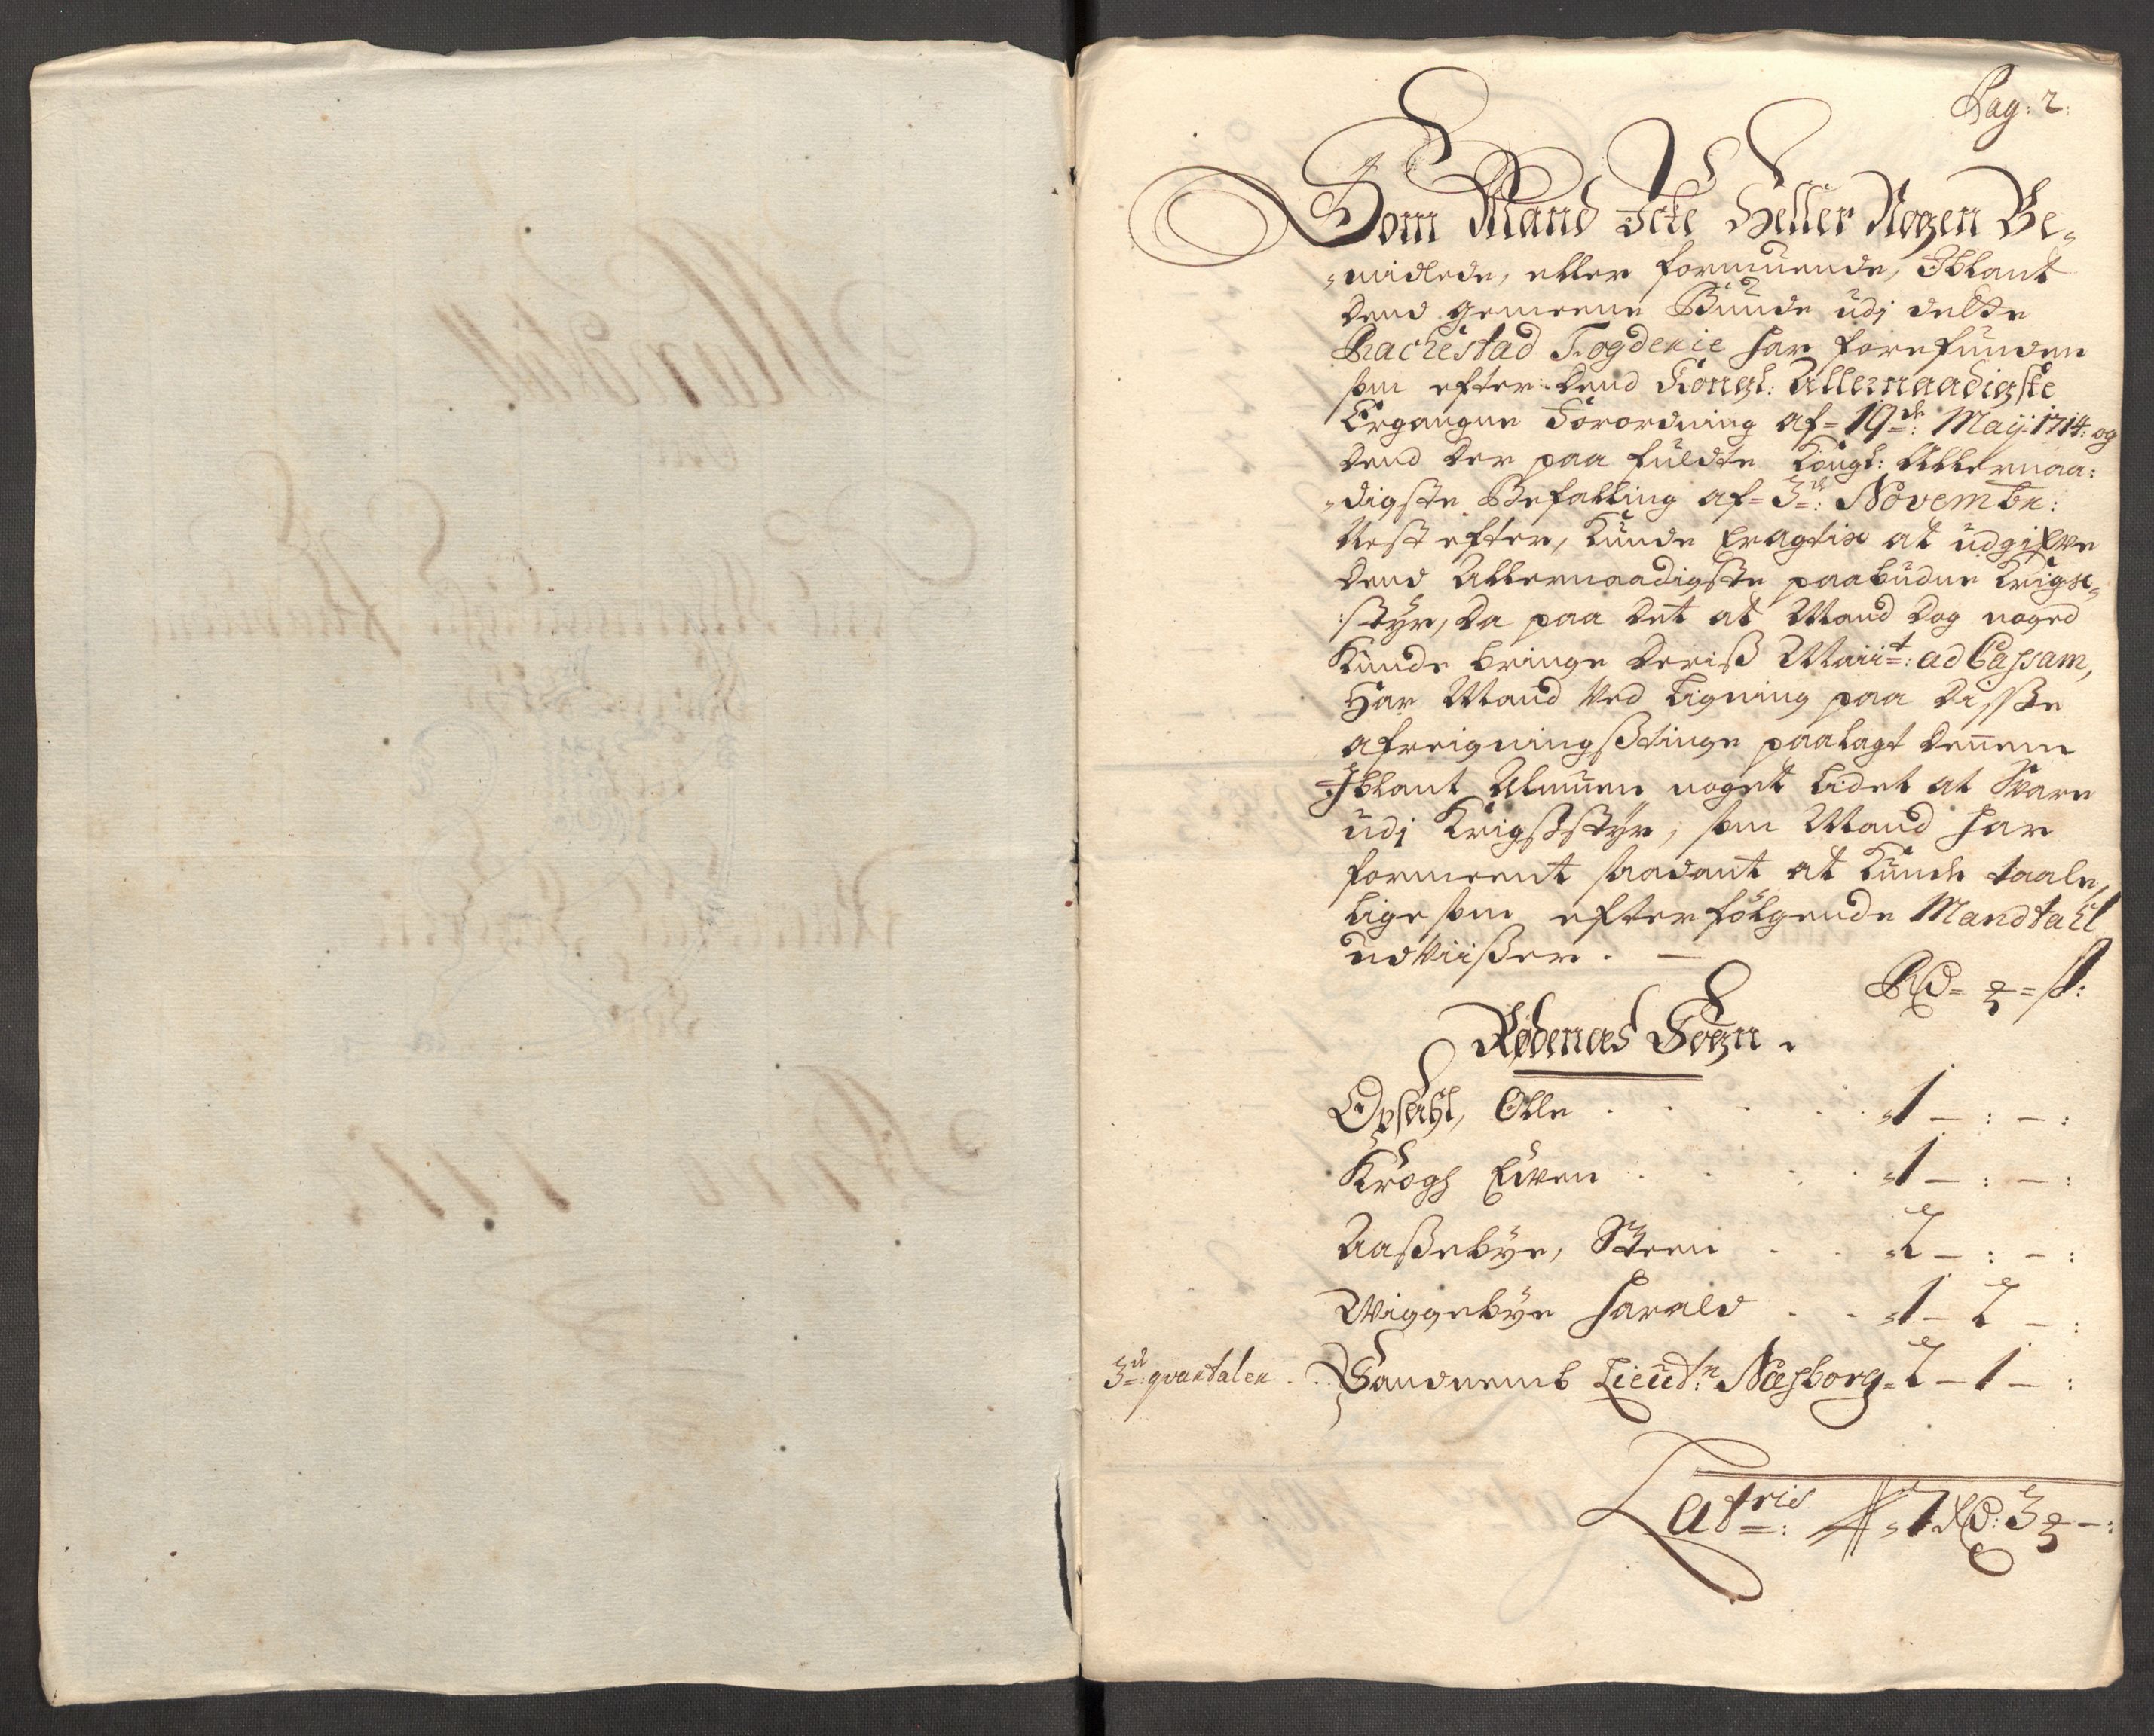 Pag: 2:
Som Mand Icke Heller Nogen Be-
midlede, eller formuende, Iblant
dend gemeene Bunde udj dette
Rachestad Fogderie har forefunden
som efter dend Kongl: Allernaadigste
Ergangne Forordning af 19de: Maij 1714: og
dend der paa fuldte Kongl: Allernaa:
digste Befalling af 3de: Novembr:
Nest efter, kunde eragtis at udgifve
dend Allernaadigste paabudne Krigs-
styr, da paa det at Mand dog noged
kunde bringe deris Maiit: ad Cassam,
Har Mand ved ligning paa disse
afreigningstinge paalagt dennem
Iblant Almuen noget lidet at svare
udj Krigsstyr, som Mand har
formeent saadant at kunde taale,
lige som efterfølgende Mandtall
udviisser. —
Rd= ort = s:
Rødenæs Sogn.
Opsahl, Olle . . . . 1 — : — :
Krogh Eiven . . . . 1 — : — :
Aassebye, Steen . . 2 — : — :
Wiggebye Harald . . 1 — 2 — :
3de: qvartaler . . Sandnemb Lieutn: Næsborg = 2 — 1 — :
Latris: 7 Rd: 3 ort — :